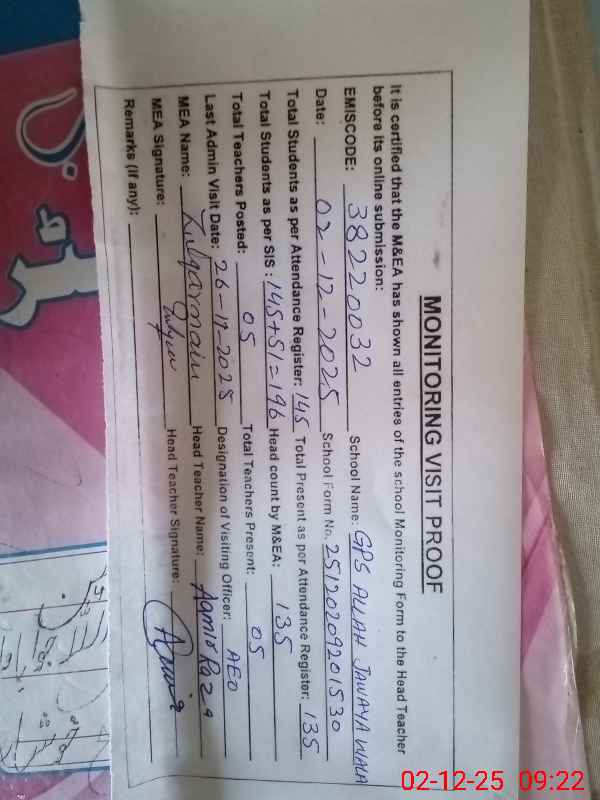 MONITORING VISIT PROOF
It is certified that the M&EA has shown all entries of the school Monitoring Form to the Head Teacher
before its online submission:
EMISCODE: 38220032 School Name: GPS ALLAH JAWAYA WALA
Date: 02-12-2025 School Form No. 25120209201530
Total Students as per Attendance Register: 145 Total Present as per Attendance Register: 135
Total Students as per SIS: 145+51=196 Head count by M&EA: 135
Total Teachers Posted: 05 Total Teachers Present: 05
Last Admin Visit Date: 26-11-2025 Designation of Visiting Officer: AEO
MEA Name: Zulqarnain Head Teacher Name: Aqmio Raza
MEA Signature: Head Teacher Signature:
Remarks (If any):
02-12-25 09:22